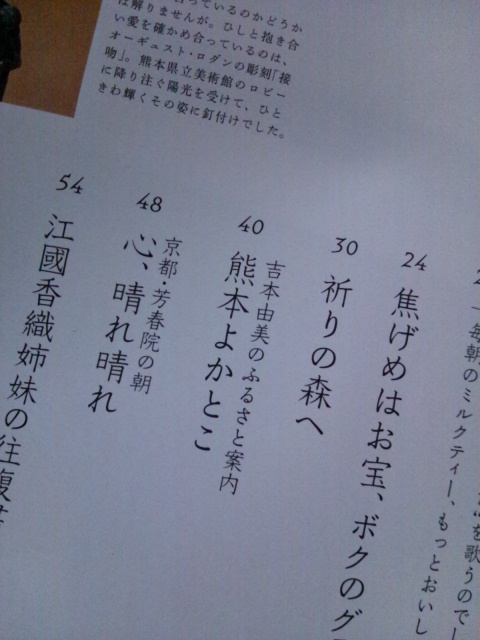 っているのかどうか
は解りませんが。ひしと抱き合
い愛を確かめ合っているのは、
オーギュスト・ロダンの彫刻「接
吻」。熊本県立美術館のロビー
に降り注ぐ陽光を受けて、ひと
きわ輝くその姿に釘付けでした。
を歌うのでし
毎朝のミルクティー、もっとおいし
24
焦げめはお宝、ボクのグ
30
祈りの森へ
40
吉本由美のふるさと案内
熊本よかとこ
48
京都・芳春院の朝
心、晴れ晴れ
54
江國香織姉妹の往復